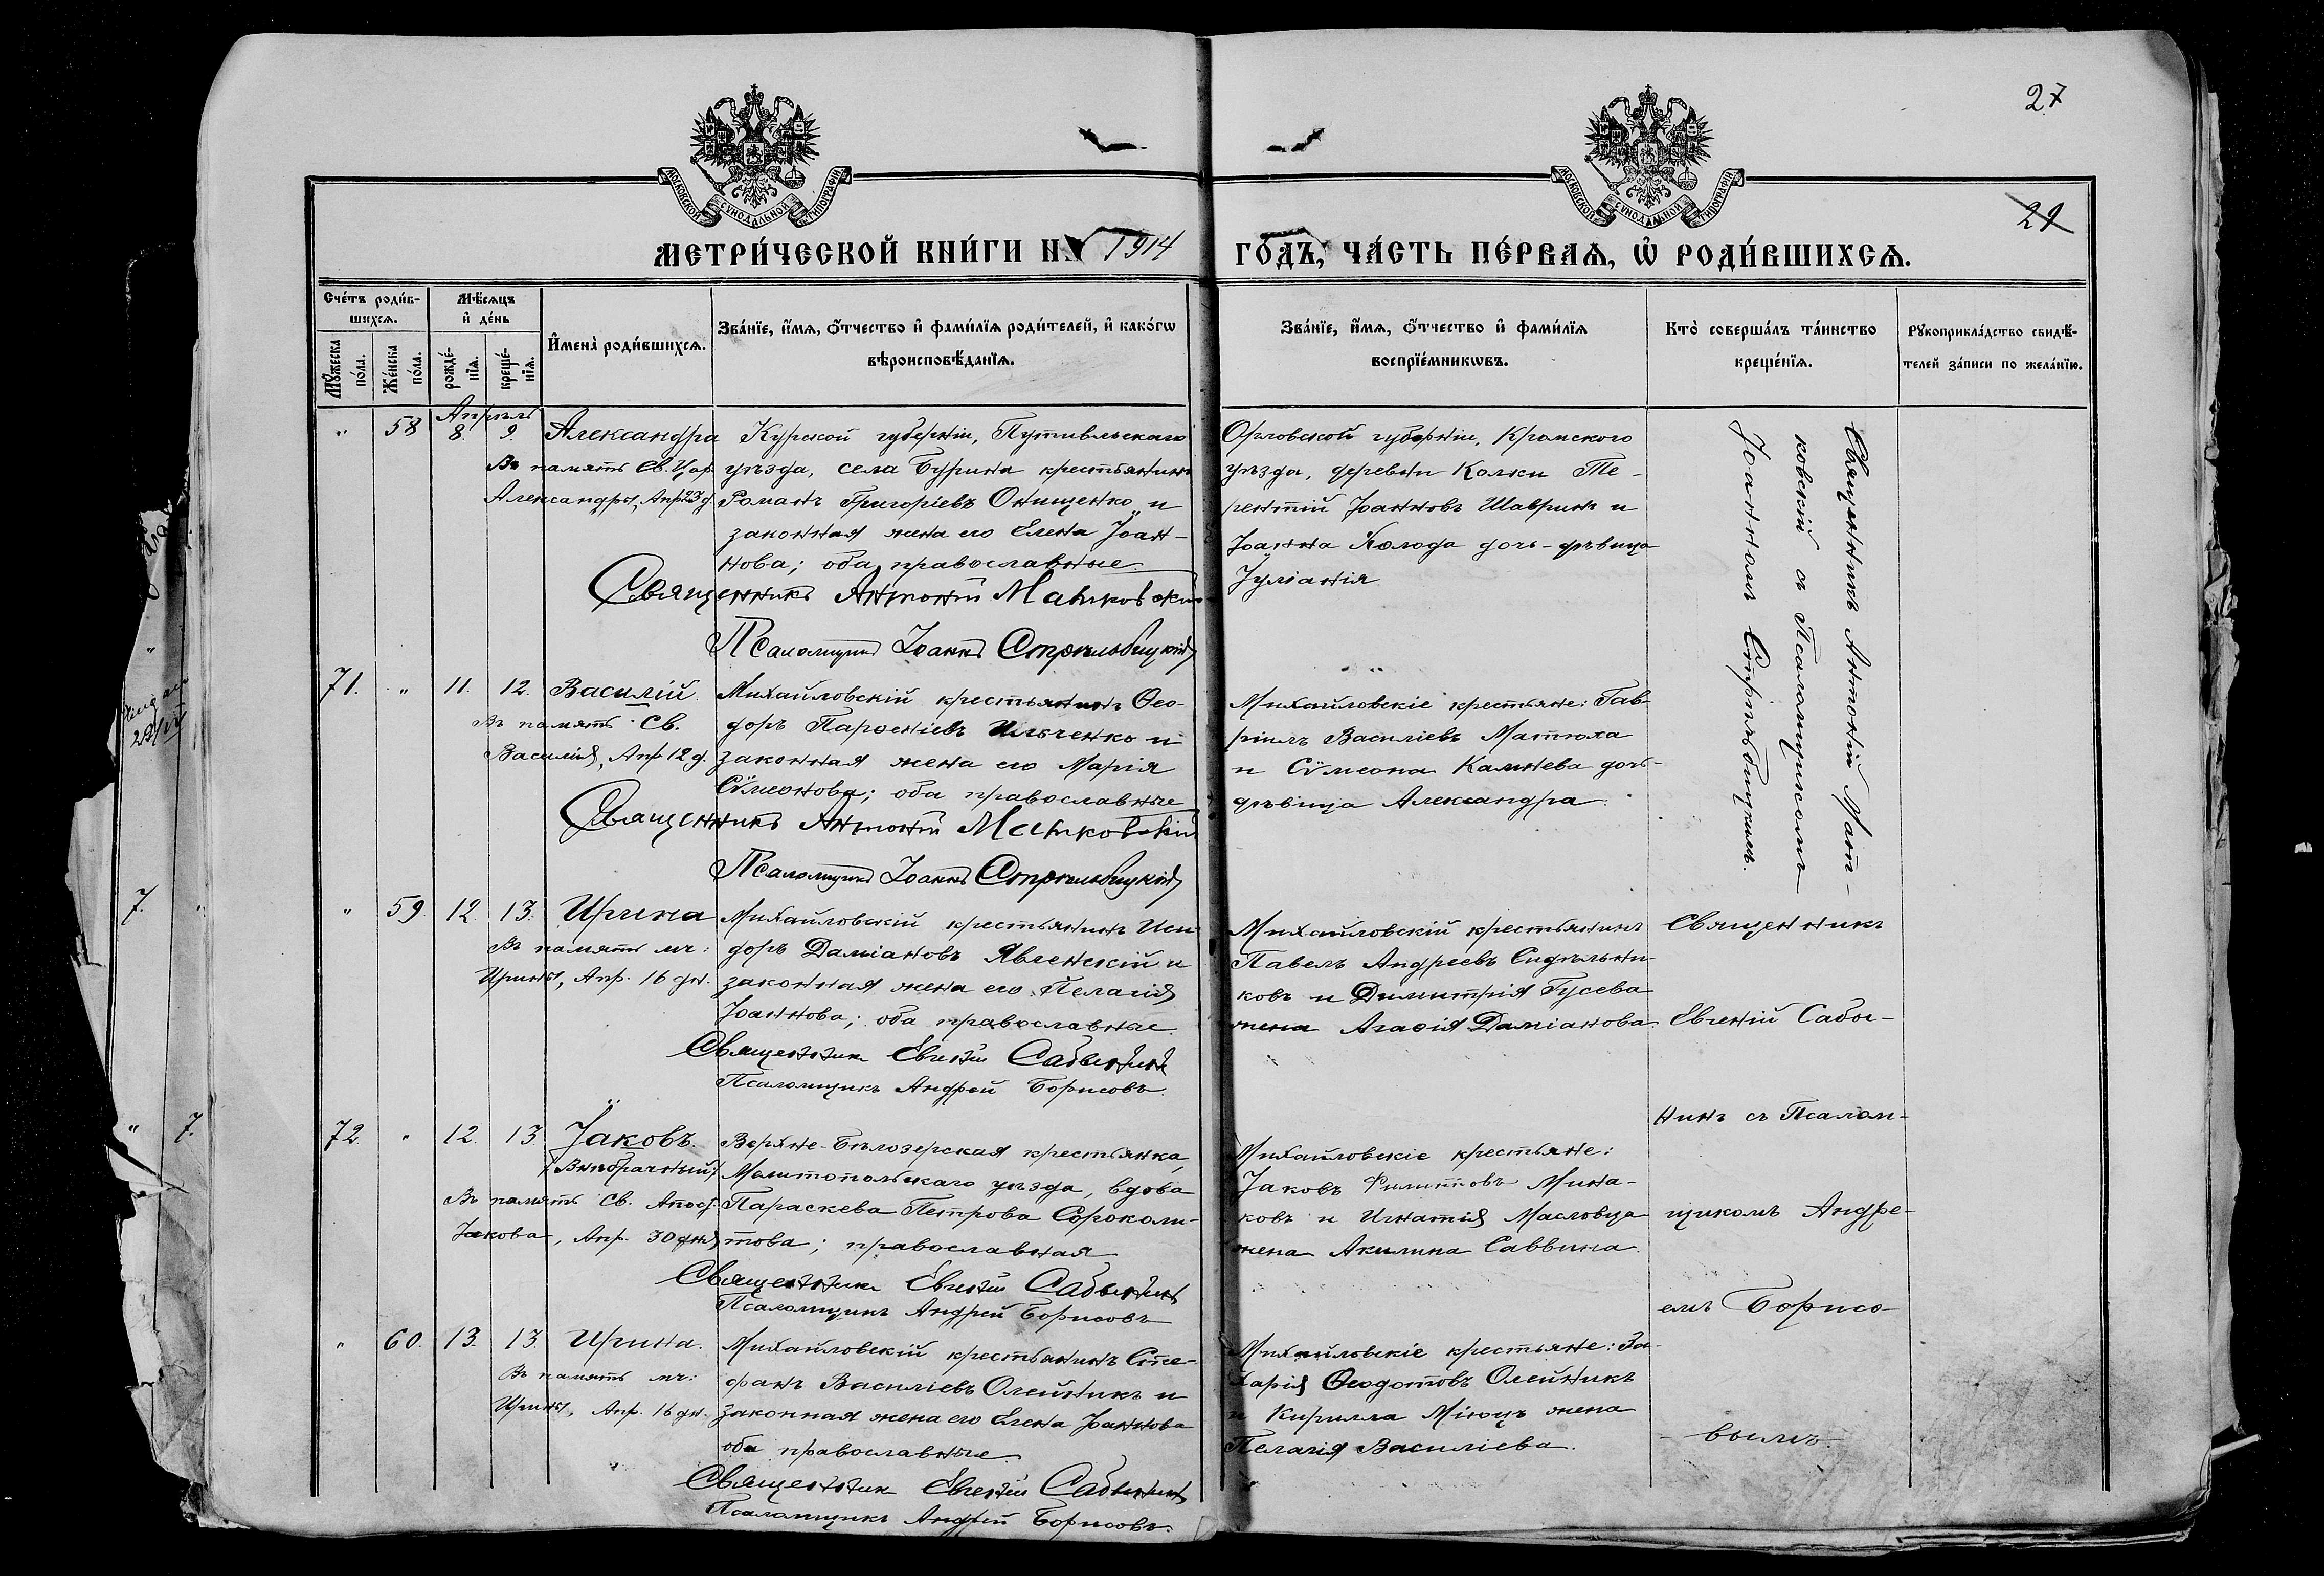 27
29
МОСКОВСКОЙ СѴНОДАЛЬНОЙ ТИПОГРАФІИ
МОСКОВСКОЙ СѴНОДАЛЬНОЙ ТИПОГРАФІИ
МЕТРИ́ЧЕСКОЙ КНИ́ГИ НА 1914 ГО́ДЪ, ЧА́СТЬ ПЕ́РВАѦ, Ѡ҆ РОДИ́ВШИХСѦ.
Сче́тъ роди́в-
шихсѧ.
Мꙋ́жеска по́ла.
Же́нска по́ла.
Мѣ́сѧцъ
и҆ де́нь
рожде́-
нїѧ.
креще́-
нїѧ.
И҆мена̀ роди́вшихсѧ.
Зва́нїе, и҆́мѧ, ѻ҆́тчество и҆ фами́лїѧ роди́телей, и҆ како́гѡ
вѣроисповѣ́данїѧ.
Зва́нїе, и҆́мѧ, ѻ҆́тчество и҆ фами́лїѧ
воспрїе́мникѡвъ.
Кто̀ соверша́лъ та́инство
креще́нїѧ.
Рꙋкоприкла́дство свидѣ́-
телей за́писи по жела́нїю.
Апрѣль
" 58 8. 9. Александра
Въ память Св. Цар.
Александры, Апр. 23 д.
Курской губерніи, Путивльскаго
уѣзда, села Бурина крестьянинъ
Романъ Григоріевъ Онищенко и
законная жена его Елена Іоан-
нова; оба православные.
Священникъ Антоній Матковскій
Псаломщикъ Іоаннъ Стрѣльбицкій
Орловской губерніи, Кромского
уѣзда, деревни Колки Те-
рентій Іоанновъ Шавринъ и
Іоанна Колода дочь-дѣвица
Іуліанія
Священникъ Антоній Мат-
ковскій съ Псаломщикомъ
Іоанномъ Стрѣльбицкимъ.
71. " 11. 12. Василій.
Въ память Св.
Василія, Апр 12 д.
Михайловскій крестьянинъ Ѳео-
доръ Парѳеніевъ Ильченко и
законная жена его Марія
Сѵмеонова; оба православные
Священникъ Антоній Матковскій
Псаломщикъ Іоаннъ Стрѣльбицкій
Михайловскіе крестьяне: Гав-
ріилъ Василіевъ Матюха
и Сѵмеона Калнева дочь-
дѣвица Александра.
" 59. 12. 13. Ирина
Въ память мч:
Ирины, Апр. 16 дн.
Михайловскій крестьянинъ Иси-
доръ Даміановъ Явленскій и
законная жена его Пелагія
Іоаннова; оба православные.
Священникъ Евгеній Сабынинъ
Псаломщикъ Андрей Борисовъ.
Михайловскій крестьянинъ
Павелъ Андреевъ Сидѣльни-
ковъ и Димитрія Гусева
жена Агаѳія Даміанова.
Священникъ
Евгеній Сабы-
нинъ съ Псалом-
щикомъ Андре-
емъ Борисо-
вымъ.
72. " 12. 13 Іаковъ.
(Внѣбрачный)
Въ память Св. Апост.
Іакова, Апр. 30 дня
Верхне-Бѣлозерская крестьянка,
Мелитопольскаго уѣзда, вдова
Параскева Петрова Сороколи-
това; православная
Священникъ Евгеній Сабынинъ
Псаломщикъ Андрей Борисовъ
Михайловскіе крестьяне:
Іаковъ Филипповъ Мина-
ковъ и Игнатія Масловца
жена Акилина Саввина.
" 60. 13. 13. Ирина.
Въ память мч:
Ирины, Апр. 16 дн.
Михайловскій крестьянинъ Сте-
фанъ Василіевъ Олейникъ и
законная жена его Елена Іоаннова
оба православные.
Священникъ Евгеній Сабынинъ
Псаломщикъ Андрей Борисовъ.
Михайловскіе крестьяне: За-
харія Ѳеодотовъ Олейникъ
и Кирилла Міюцъ жена
Пелагія Василіева.
7.
" 7.